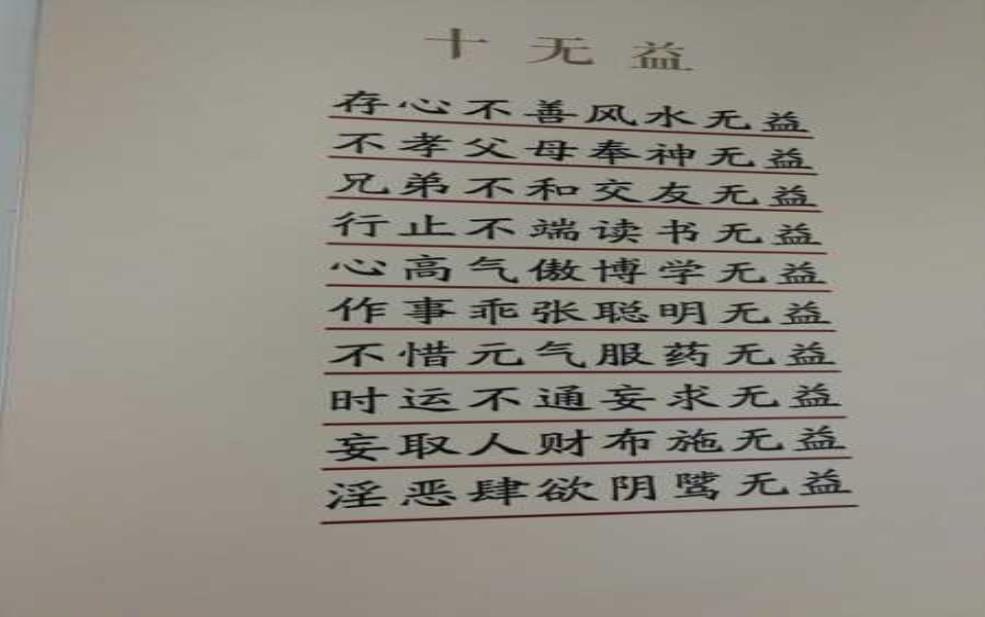 十无益
存心不善风水无益
不孝父母奉神无益
兄弟不和交友无益
行止不端读书无益
心高气傲博学无益
作事乖张聪明无益
不惜元气服药无益
时运不通妄求无益
妄取人财布施无益
淫恶肆欲阴骘无益